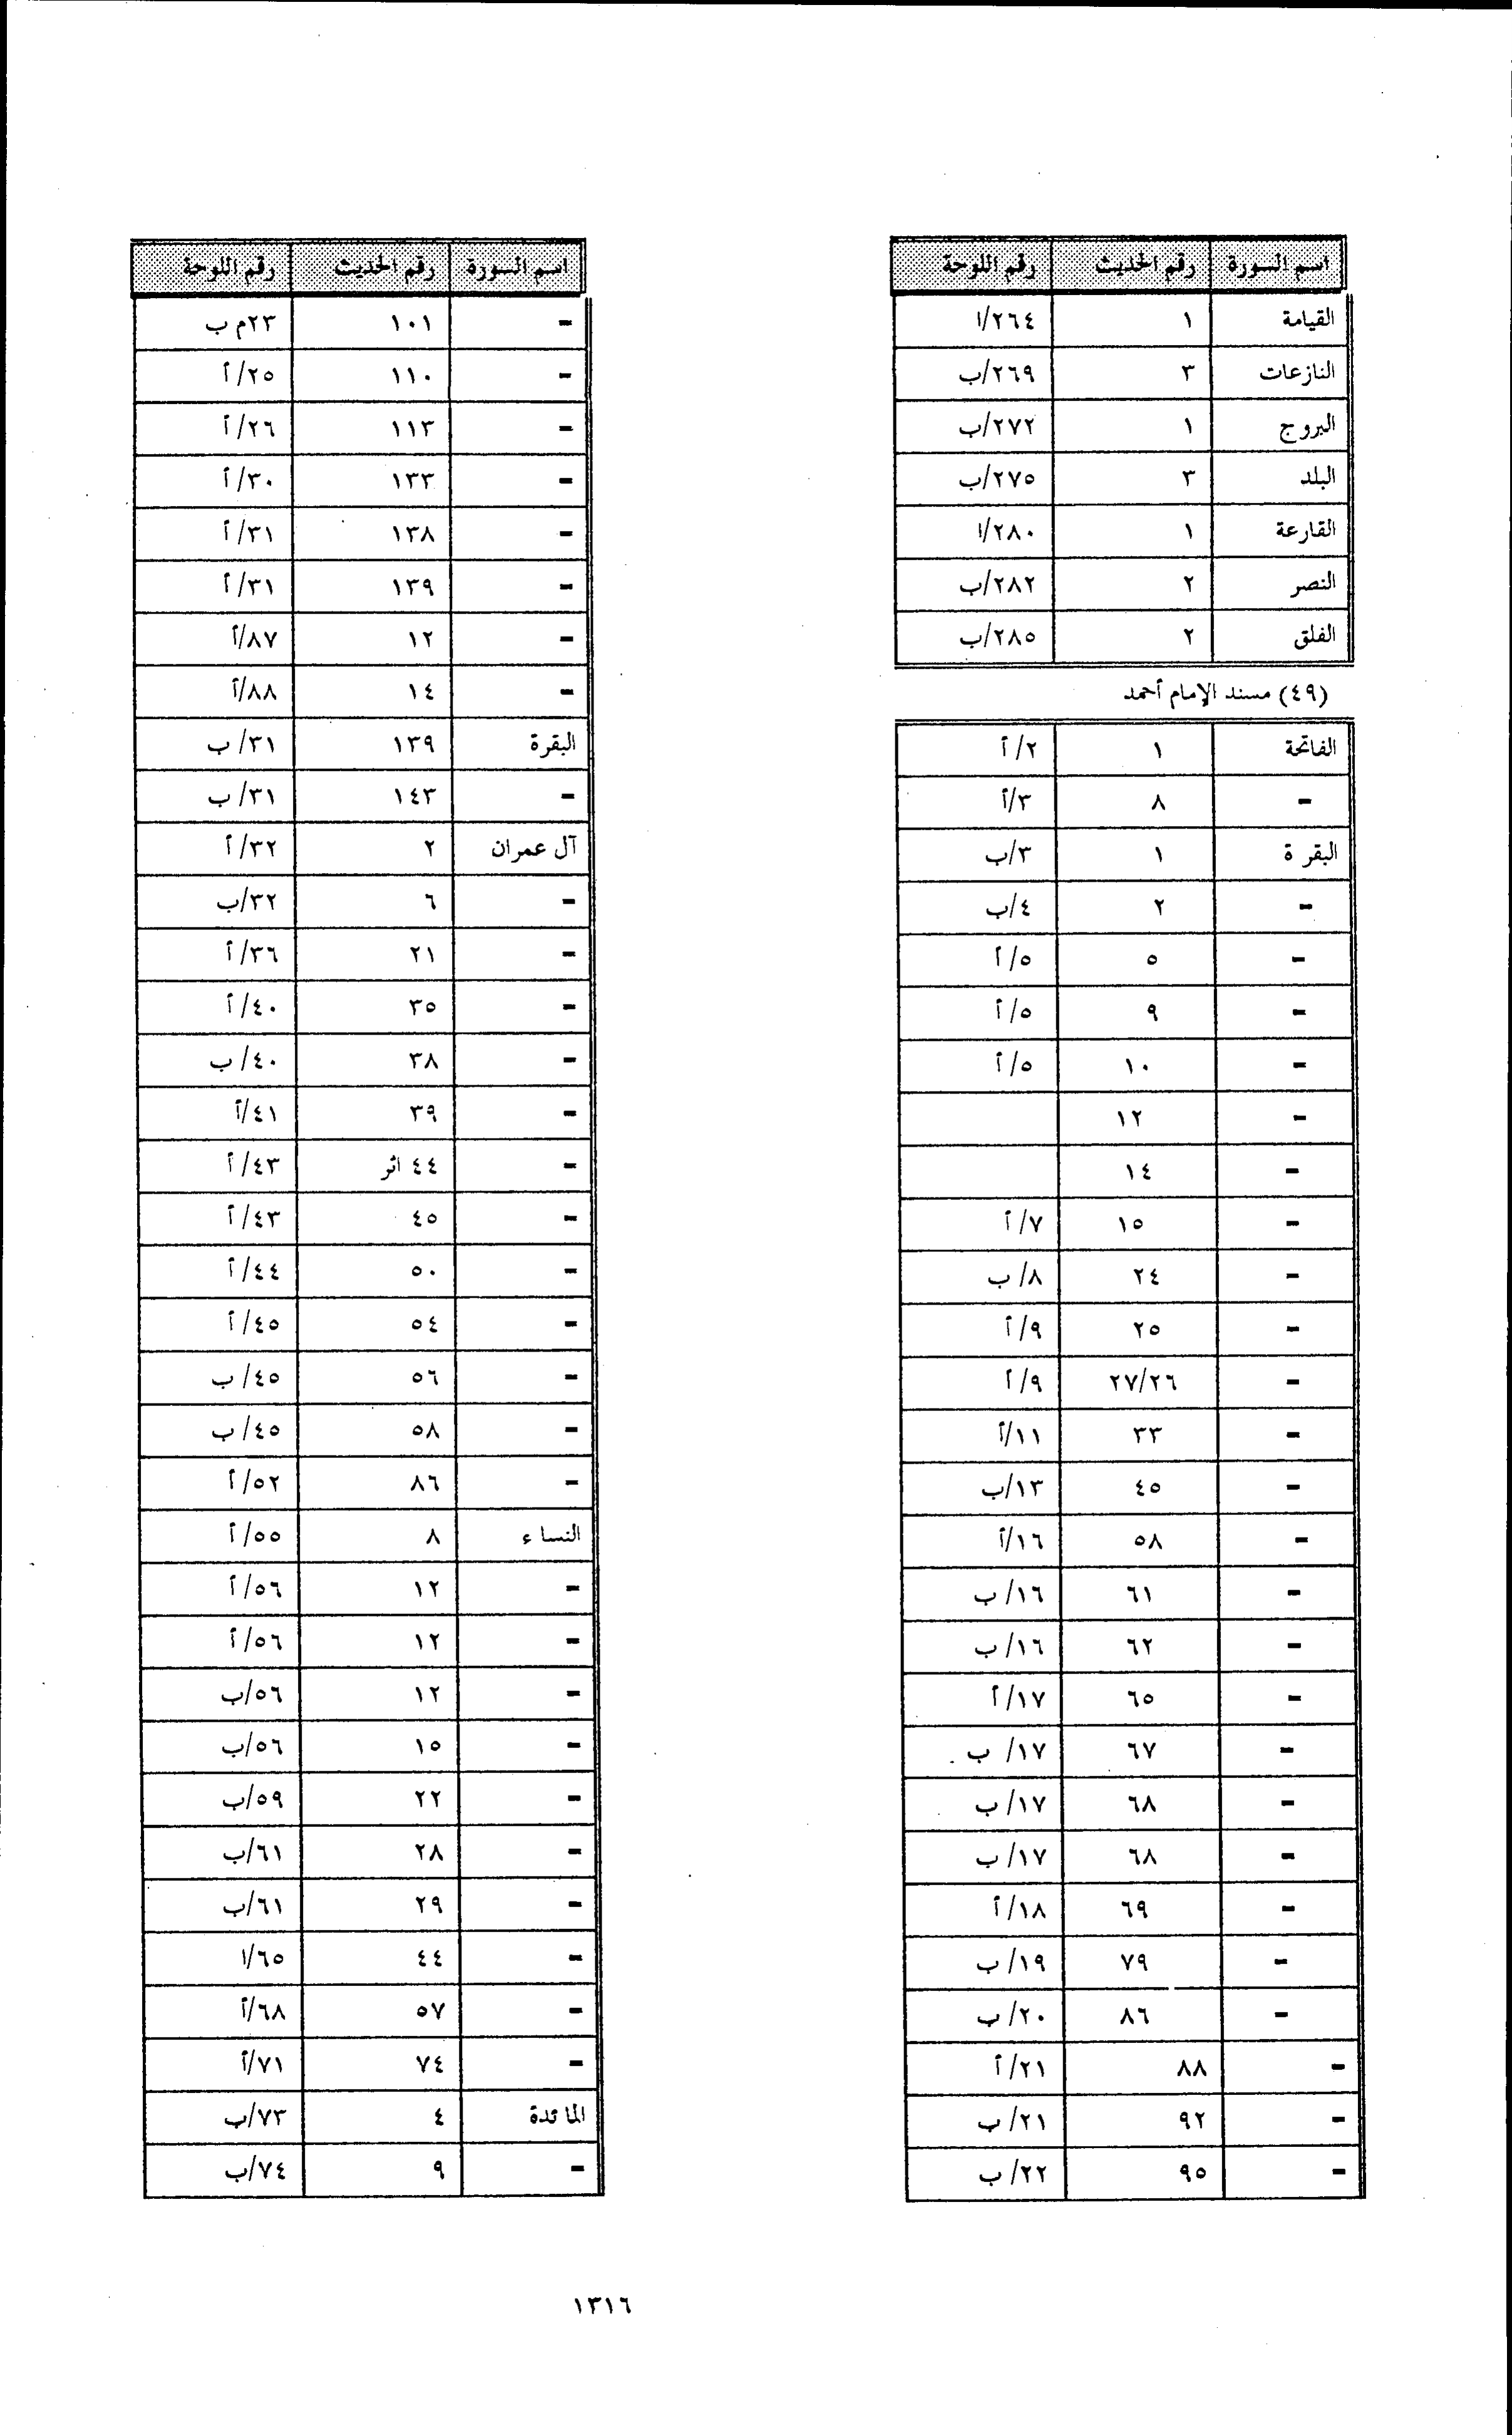 اسم السورة رقم الحديث رقم اللوحة
القيامة ١ ٢٦٤/ا
النازعات ٣ ٢٦٩/ب
البروج ١ ٢٧٢/ب
البلد ٣ ٢٧٥/ب
القارعة ١ ٢٨٠/ا
النصر ٢ ٢٨٢/ب
الفلق ٢ ٢٨٥/ب
(٤٩) مسند الإمام أحمد
الفاتحة ١ ٢/أ
- ٨ ٣/أ
البقرة ١ ٣/ب
- ٢ ٤/ب
- ٥ ٥/أ
- ٩ ٥/أ
- ١٠ ٥/أ
- ١٢
- ١٤
- ١٥ ٧/أ
- ٢٤ ٨/ب
- ٢٥ ٩/أ
- ٢٧/٢٦ ٩/أ
- ٣٣ ١١/أ
- ٤٥ ١٣/ب
- ٥٨ ١٦/أ
- ٦١ ١٦/ب
- ٦٢ ١٦/ب
- ٦٥ ١٧/أ
- ٦٧ ١٧/ب
- ٦٨ ١٧/ب
- ٦٨ ١٧/ب
- ٦٩ ١٨/أ
- ٧٩ ١٩/ب
- ٨٦ ٢٠/ب
- ٨٨ ٢١/أ
- ٩٢ ٢١/ب
- ٩٥ ٢٢/ب
اسم السورة رقم الحديث رقم اللوحة
- ١٠١ ٢٣م ب
- ١١٠ ٢٥/أ
- ١١٣ ٢٦/أ
- ١٣٣ ٣٠/أ
- ١٣٨ ٣١/أ
- ١٣٩ ٣١/أ
- ١٢ ٨٧/أ
- ١٤ ٨٨/أ
البقرة ١٣٩ ٣١/ب
- ١٤٣ ٣١/ب
آل عمران ٢ ٣٢/أ
- ٦ ٣٢/ب
- ٢١ ٣٦/أ
- ٣٥ ٤٠/أ
- ٣٨ ٤٠/ب
- ٣٩ ٤١/أ
- ٤٤ اثر ٤٣/أ
- ٤٥ ٤٣/أ
- ٥٠ ٤٤/أ
- ٥٤ ٤٥/أ
- ٥٦ ٤٥/ب
- ٥٨ ٤٥/ب
- ٨٦ ٥٢/أ
النساء ٨ ٥٥/أ
- ١٢ ٥٦/أ
- ١٢ ٥٦/أ
- ١٢ ٥٦/ب
- ١٥ ٥٦/ب
- ٢٢ ٥٩/ب
- ٢٨ ٦١/ب
- ٢٩ ٦١/ب
- ٤٤ ٦٥/ا
- ٥٧ ٦٨/أ
- ٧٤ ٧١/أ
المائدة ٤ ٧٣/ب
- ٩ ٧٤/ب
١٣١٦